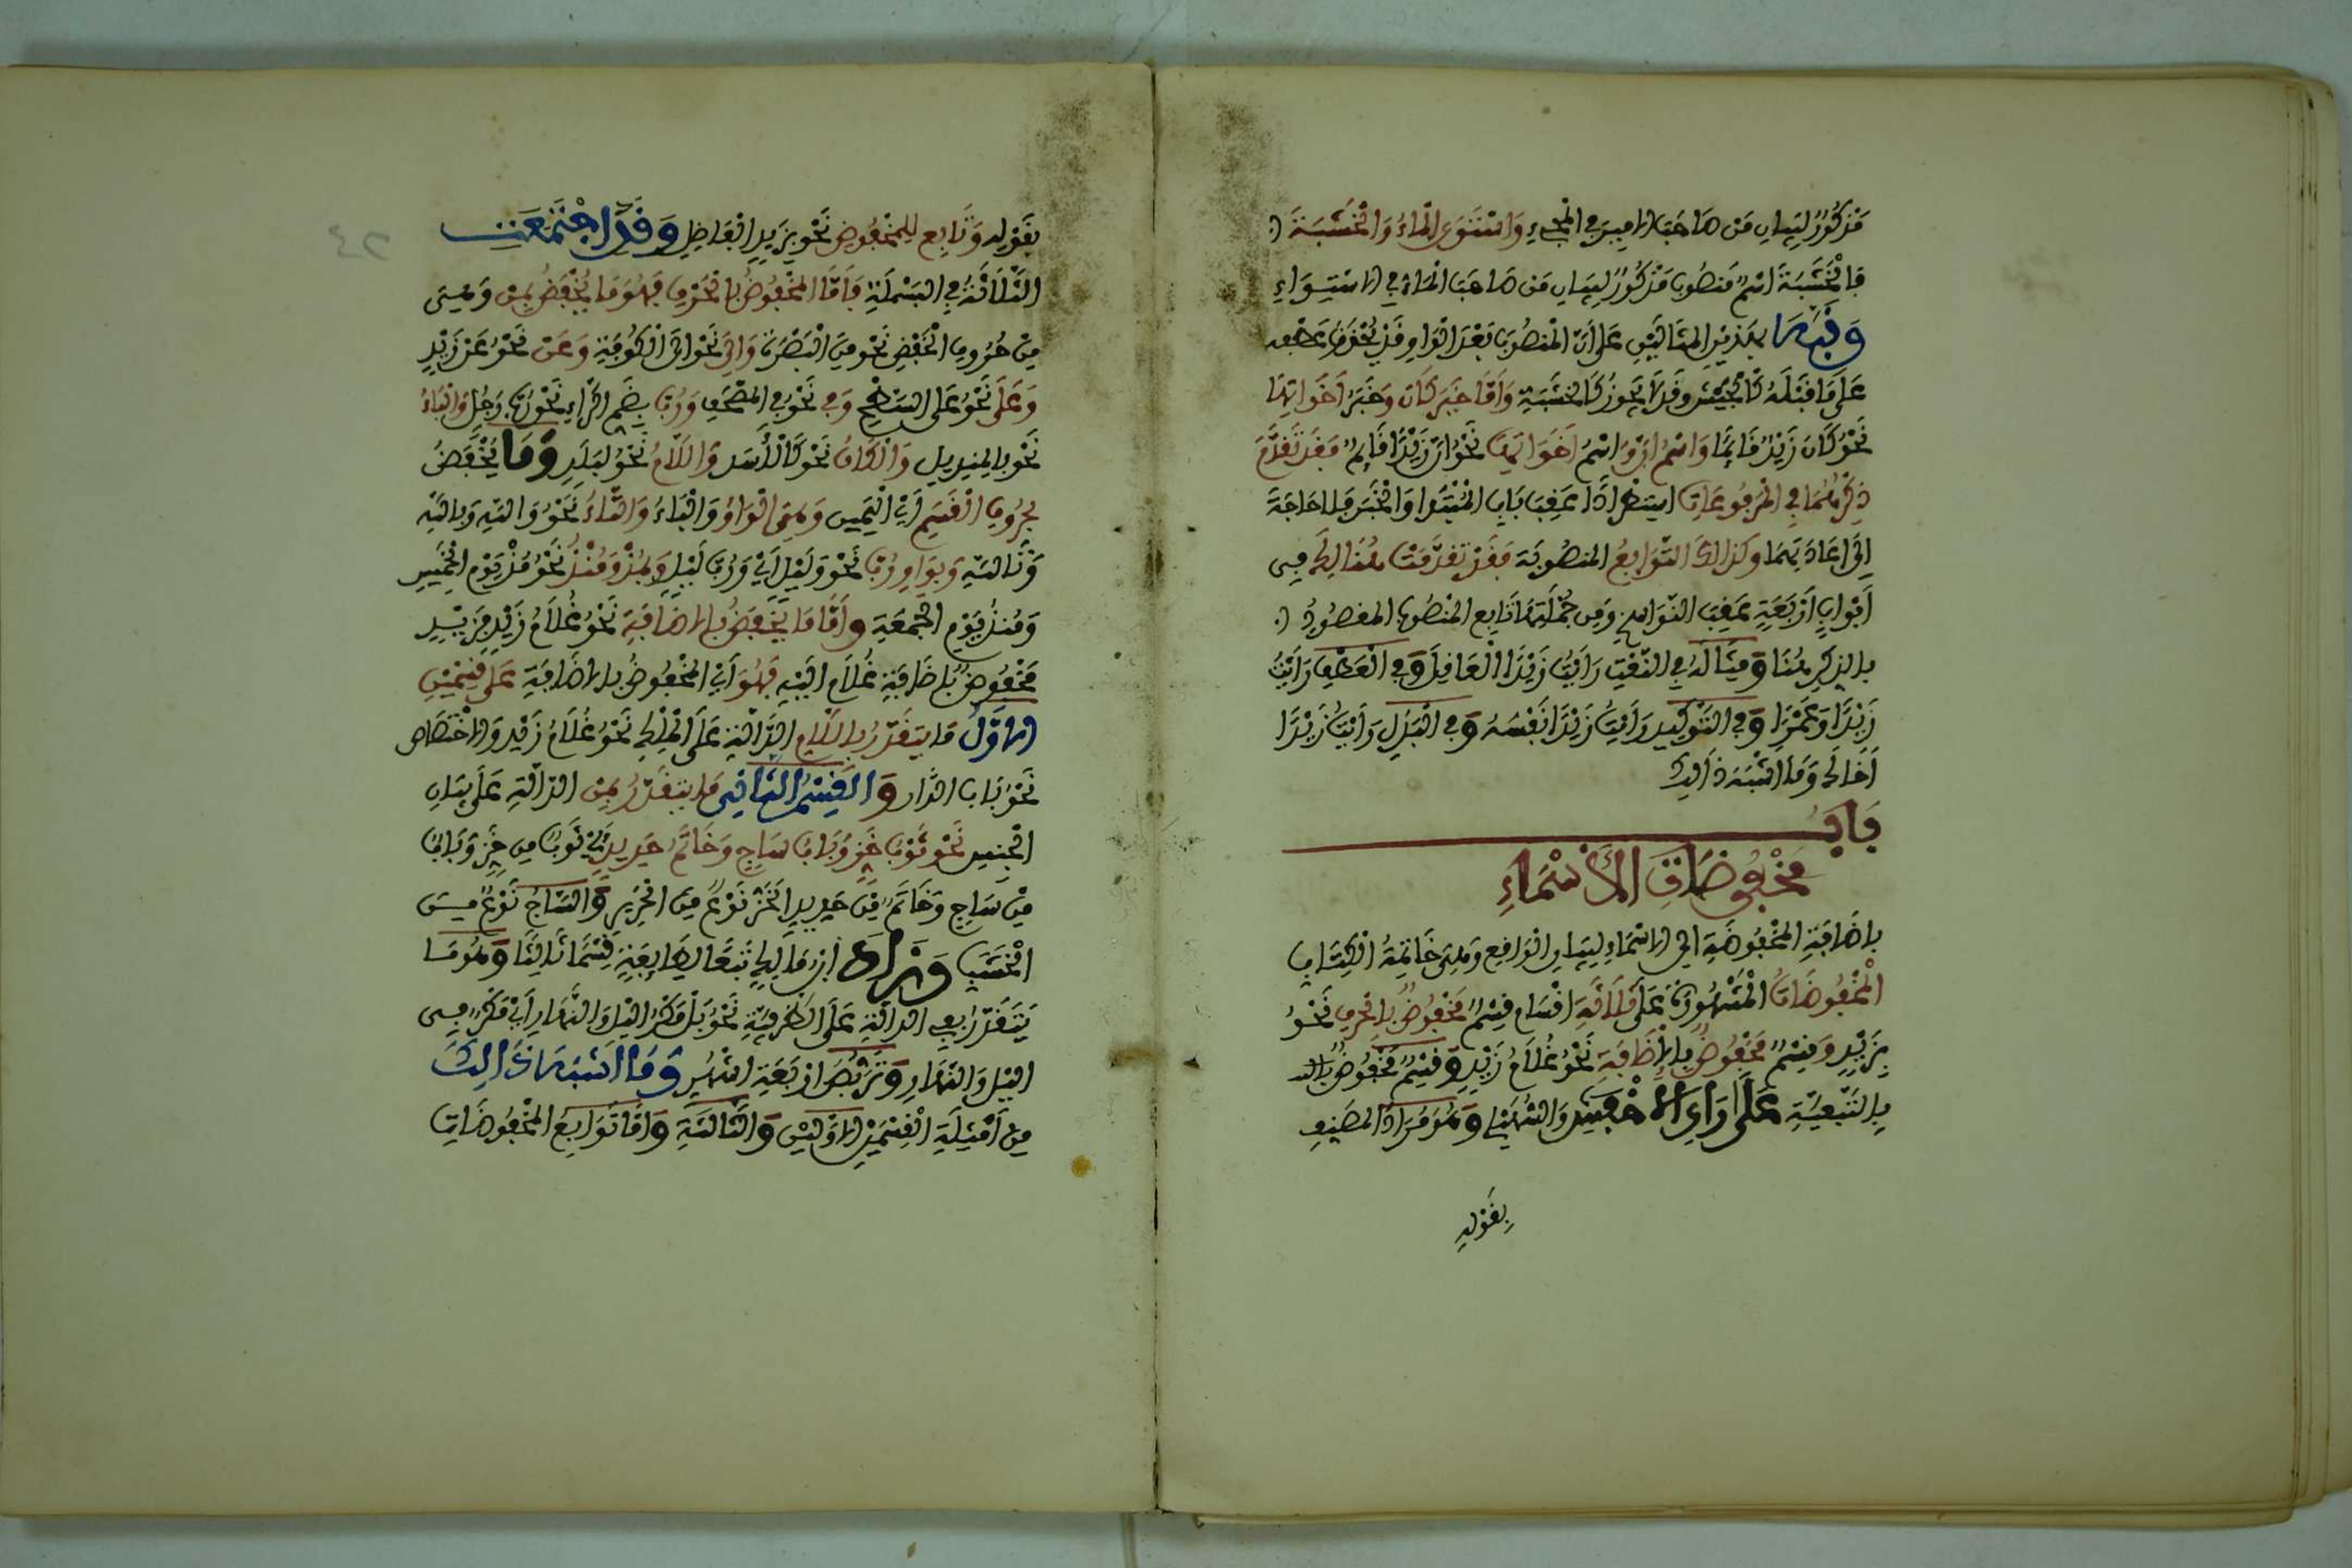 مَذْكُورٌ لِبَيَانِ مَن صَاحَبَ الامِيرَ فِي الْمَجِيءِ وَاسْتَوَى الْمَاءُ وَالْخَشَبَةَ
فَالْخَشَبَةَ اسْمٌ مَنصُوبٌ مَذْكُورٌ لِبَيَانِ مَن صَاحَبَ الْمَاءَ فِي الاسْتِوَاءِ
وَنَبَّهَ بِهَذَيْنِ المِثَالَيْنِ عَلَى أَنَّ الْمَنصُوبَ بَعْدَ الْوَاوِ قَدْ يَجُوزُ عَطْفُهُ
عَلَى مَا قَبْلَهُ كَالْجَيْشِ وَقَدْ لَا يَجُوزُ كَالْخَشَبَةِ وَأَمَّا خَبَرُ كَانَ وَخَبَرُ أَخَوَاتِهَا
نَحْوُ كَانَ زَيْدٌ قَائِمًا وَاسْمُ إِنَّ وَاسْمُ أَخَوَاتِهَا نَحْوُ إِنَّ زَيْدًا قَائِمٌ فَقَدْ تَقَدَّمَ
ذِكْرُهُمَا فِي الْمَرْفُوعَاتِ اسْتِطْرَادًا عَقِبَ بَابِ الْمُبْتَدَا وَالْخَبَرِ فَلَا حَاجَةَ
إِلَى إِعَادَتِهِمَا وَكَذَلِكَ التَّوَابِعُ الْمَنصُوبَةُ فَقَدْ تَقَدَّمَتْ هُنَالِكَ فِي
أَبْوَابٍ أَرْبَعَةٍ عَقِبَ النَّوَاسِخِ وَمِن جُمْلَتِهَا تَابِعُ الْمَنصُوبِ المقصُودُ
بِالذِّكْرِ هُنَا وَمِثَالُهُ فِي النَّعْتِ رَأَيْتُ زَيْدًا الْعَاقِلَ وَفِي الْعَطْفِ رَأَيْتُ
زَيْدًا وَعَمْرًا وَفِي التَّوْكِيدِ رَأَيْتُ زَيْدًا نَفْسَهُ وَفِي الْبَدَلِ رَأَيْتُ زَيْدًا
أَخَاكَ وَمَا أَشْبَهَ ذَلِكَ
بَابُ
مَخْفُوضَاتِ الْأَسْمَاءِ
بِإِضَافَةِ الْمَخْفُوضَةِ إِلَى الاسْمَاءِ لِبَيَانِ الْوَاقِعِ وَهِيَ خَاتِمَةُ الْكِتَابِ
الْمَخْفُوضَاتُ الْمَشْهُورَةُ عَلَى ثَلَاثَةِ أَقْسَامٍ قِسْمٌ مَخْفُوضٌ بِالْحَرْفِ نَحْوُ
بِزَيْدٍ وَقِسْمٌ مَخْفُوضٌ بِالْإِضَافَةِ نَحْوُ غُلَامُ زَيْدٍ وَقِسْمٌ مَخْفُوضٌ
بِالتَّبَعِيَّةِ عَلَى رَأْيِ الاخْفَشِ وَالسُّهَيْلِي وَهُوَ مُرَادُ الْمُصَنِّفِ
بِقَوْلِهِ
بِقَوْلِهِ وَتَابِعٌ لِلْمَخْفُوضِ نَحْوُ بِزَيْدٍ الْفَاضِلِ وَقَدِ اجْتَمَعَتِ
الثَّلَاثَةُ فِي الْبَسْمَلَةِ فَأَمَّا الْمَخْفُوضُ بِالْحَرْفِ فَهُوَ مَا يُخْفَضُ بِمِنْ وَهِيَ
مِنْ حُرُوفِ الْخَفْضِ نَحْوُ مِنَ الْبَصْرَةِ وَإِلَى نَحْوُ إِلَى الْكُوفَةِ وَعَنْ نَحْوُ عَن زَيْدٍ
وَعَلَى نَحْوُ عَلَى السَّطْحِ وَفِي نَحْوُ فِي الْمُصْحَفِ وَرُبَّ بِضَمِّ الرَّاءِ نَحْوُ رُبَّ رَجُلٍ وَالْبَاءُ
نَحْوُ بِالْمِنْدِيلِ وَالْكَافُ نَحْوُ كَالْأَسَدِ وَاللَّامُ نَحْوُ لِبَلَدٍ وَمَا يُخْفَضُ
بِحُرُوفِ الْقَسَمِ أَيِ الْيَمِينِ وَهِيَ الْوَاوُ وَالْبَاءُ وَالتَّاءُ نَحْوُ وَاللَّهِ وَبِاللَّهِ
وَتَاللَّهِ وَبِوَاوِ رُبَّ نَحْوُ وَلَيْلٍ أَيْ وَرُبَّ لَيْلٍ وَبِمُذْ وَمُنْذُ نَحْوُ مُذْ يَوْمِ الْخَمِيسِ
وَمُنذُ يَوْمِ الْجُمُعَةِ وَأَمَّا مَا يُخْفَضُ بِالاضَافَةِ نَحْوُ غُلَامُ زَيْدٍ فَزَيْدٍ
مَخْفُوضٌ بِإِضَافَةِ غُلَامٍ إِلَيْهِ فَهُوَ أَيِ الْمَخْفُوضُ بِالاضَافَةِ عَلَى قِسْمَيْنِ
الاوَّلُ مَا يُقَدَّرُ بِاللَّامِ الدَّالَّةِ عَلَى الْمِلْكِ نَحْوُ غُلَامُ زَيْدٍ وَالاخْتِصَاصِ
نَحْوُ بَابُ الدَّارِ وَالْقِسْمُ الثَّانِي مَا يُقَدَّرُ بِمِنْ الدَّالَّةِ عَلَى بَيَانِ
الْجِنسِ نَحْوُ ثَوْبُ خَزٍّ وَبَابُ سَاجٍ وَخَاتَمُ حَدِيدٍ أَيْ ثَوْبٌ مِن خَزٍّ وَبَابٌ
مِنْ سَاجٍ وَخَاتَمٌ مِنْ حَدِيدٍ الْخَزُّ نَوْعٌ مِنَ الْحَرِيرِ وَالسَّاجُ نَوْعٌ مِنَ
الْخَشَبِ وَزَادَ ابْنُ مَالِكٍ تَبَعًا لِطَائِفَةٍ قِسْمًا ثَالِثًا وَهُوَ مَا
يُقَدَّرُ بِفِي الدَّالَّةِ عَلَى الظَّرْفِيَّةِ نَحْوُ بَلْ مَكْرُ اللَّيْلِ وَالنَّهَارِ أَيْ مَكْرٌ فِي
اللَّيْلِ وَالنَّهَارِ وَتَرَبُّصُ أَرْبَعَةِ أَشْهُرٍ وَمَا أَشْبَهَ ذَلِكَ
مِنْ أَمْثِلَةِ الْقِسْمَيْنِ الاوَّلَيْنِ وَالثَّالِثَةِ وَأَمَّا تَوَابِعُ الْمَخْفُوضَاتِ